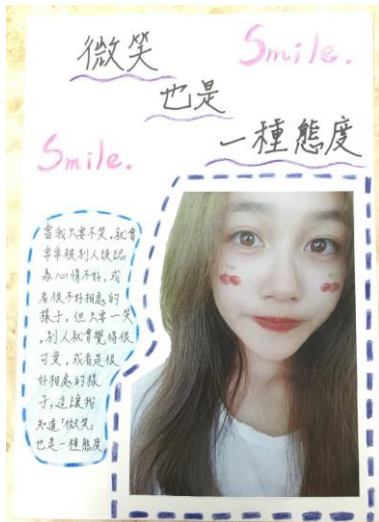 微笑
Smile.
也是
一種態度
Smile.
當我只要不笑,就會
常常被別人誤認
為心情不好,或
者很不好相處的
樣子,但只要一笑
,別人就會覺得很
可愛,或者是很
好相處的樣
子,這讓我
知道「微笑」
也是一種態度